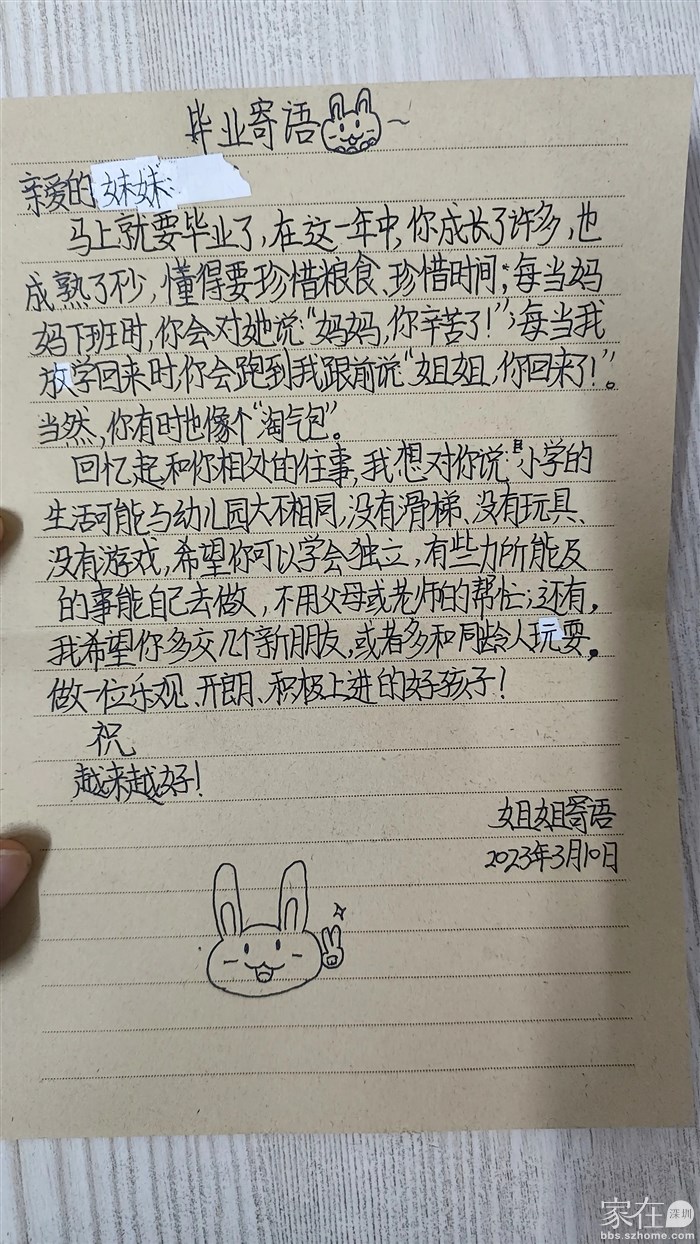 毕业寄语~
亲爱的妹妹:
马上就要毕业了,在这一年中,你成长了许多,也
成熟了不少,懂得要珍惜粮食、珍惜时间;每当妈
妈下班时,你会对她说:“妈妈,你辛苦了!”;每当我
放学回来时,你会跑到我跟前说“姐姐,你回来了!”。
当然,你有时也像个“淘气包”。
回忆起和你相处的往事,我想对你说:小学的
生活可能与幼儿园大不相同,没有滑梯、没有玩具、
没有游戏,希望你可以学会独立,有些力所能及
的事能自己去做,不用父母或老师的帮忙;还有,
我希望你多交几个新朋友,或者多和同龄人玩耍。
做一位乐观、开朗、积极上进的好孩子!
祝
越来越好!
姐姐寄语
2023年3月10日
家在深圳
bbs.szhome.com